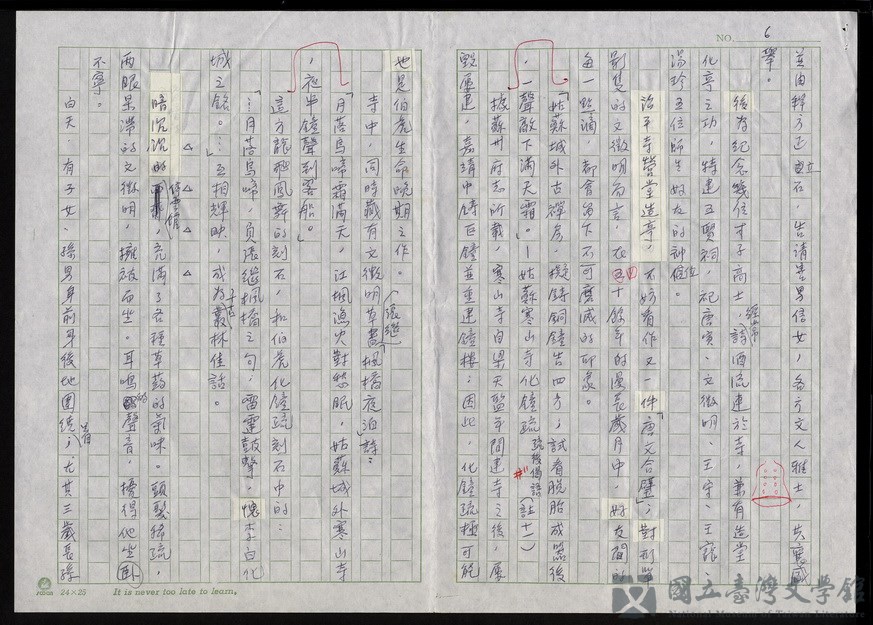 NO. 6
並由釋方正立石，告請善男信女，各方文人雅士，共襄盛
舉。
後為紀念幾位才子高士，經常詩酒流連於寺，兼有造堂
化亭之功，特建五賢祠，祀唐寅、文徵明、王守、王寵
湯珍五位師生好友的神位。
治平寺營堂造亭，不妨看作又一件「唐文合璧」；對形單
影隻的文徵明而言，在四十餘年的漫長歲月中，好友間的
每一點滴，都會留下不可磨滅的印象。
「姑蘇城外古禪房，擬鑄銅鐘告四方；試看脫胎成器後
，一聲敲下滿天霜。」—姑蘇寒山寺化鐘疏 疏後偈語（註十一）
據蘇州府志所載，寒山寺自梁天監年間建寺之後，屢
毀屢建，嘉靖中鑄巨鐘並重建鐘樓；因此，化鐘疏極可能
也是伯虎生命晚期之作。
寺中，同時藏有文徵明草書（張繼）「楓橋夜泊」詩：
「月落烏啼霜滿天，江楓漁火對愁眠，姑蘇城外寒山寺
，夜半鐘聲到客船。」
這方龍飛鳳舞的刻石，和伯虎化鐘疏刻石中的：
「…月落烏啼，負張繼楓橋之句；雷霆鼓聲，愧李白化
城之銘。…」互相輝映，成為千古叢林佳話。
△ △ △ △
暗沉沉的停雲館，充滿了各種草藥的氣味。頭髮稀疏，
兩眼呆滯的文徵明，擁被而坐。耳鳴的聲音，擾得他坐臥
不寧。
白天，有子女、孫男身前身後地圍繞著；尤其三歲長孫
24×25 It is never too late to learn.
國立臺灣文學館
National Museum of Taiwan Literature